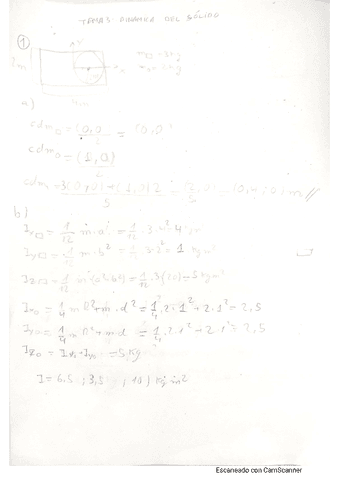 TEMA 3: DINÁMICA DEL SÓLIDO
1
m□ = 3 kg
a)
cdm□ = (0,0) = (0,0)
cdm○ = (1,0)
cdm = 3(0,0)+(1,0)2 = (2,0) = (0,4,0) m //
5 5
b)
Ix□ = 1/12 m·a² = 1/12 · 3 · 4
Iy□ = 1/12 m·b² = 1/12 · 3·2² = 1 kg m²
Iz□ = 1/12 m(a²+b²) = 1/12 · 3 = 5 kg m²
Ix○ = 1/4 m R² + m·d² = 1/4 · 2·1² + 2·1² = 2,5
Iy○ = 1/4 m R² + m·d = 1/4 · 2·1² + 2·1² = 2,5
Iz○ = Ix + Iy○ = 5 kg
I = 6,5 ; 3,5 , (10) kg m²
Escaneado con CamScanner